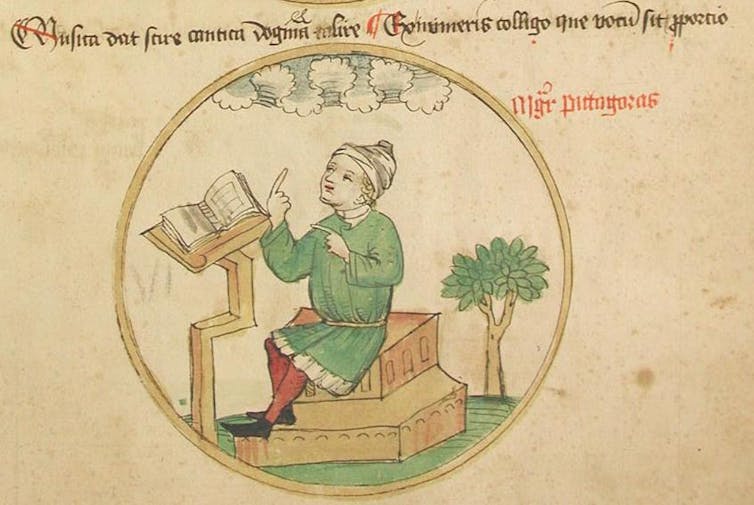 Musica dat scire cantica dogma ¶ Ex numeris colligo que vocū sit ꝓportio
Mgr pittagoras